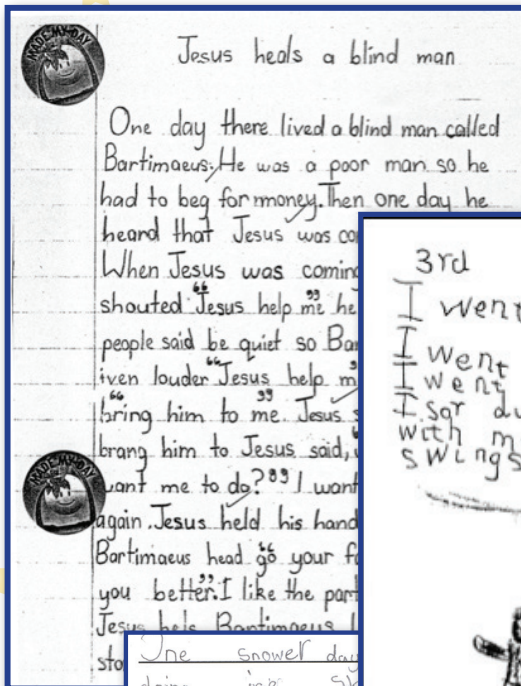 MADE MY DAY
Jesus heals a blind man
One day there lived a blind man called
Bartimaeus. He was a poor man so he
had to beg for money. Then one day he
heard that Jesus was
When Jesus was coming
shouted "Jesus help me" he
people said be quiet so
iven louder "Jesus help
"bring him to me" Jesus
brang him to Jesus said,
want me to do?" I want
again. Jesus held his hand
Bartimaeus head "go your
you better". I like the part
Jesus
MADE MY DAY
3rd
I went
I went
I went
I sor
with
swings
One snower day